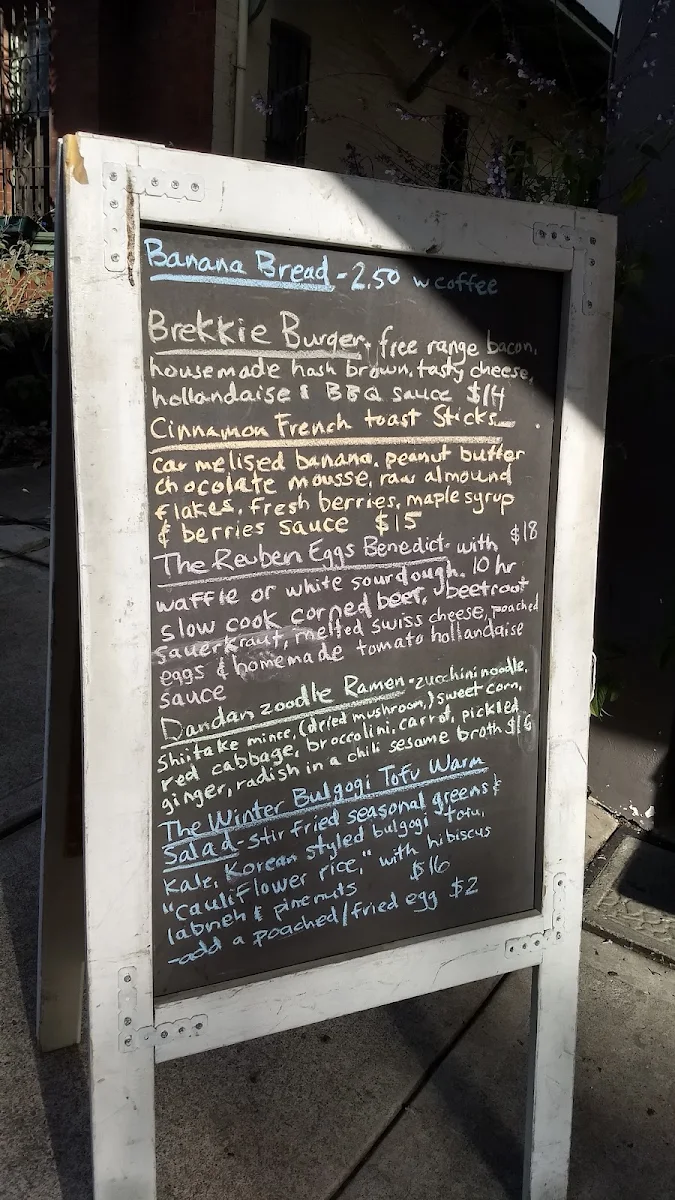 Banana Bread - 2.50 w coffee
Brekkie Burger. free range bacon,
housemade hash brown, tasty cheese,
hollandaise & BBQ sauce $14
Cinnamon French toast Sticks
carmelised banana, peanut butter
chocolate mousse, raw almound
flakes, fresh berries, maple syrup
& berries sauce $15
The Reuben Eggs Benedict - with $18
waffle or white sourdough. 10 hr
slow cook corned beer, beetroot
sauerkraut, melted swiss cheese, poached
eggs & homemade tomato hollandaise
sauce
Dandan zoodle Ramen - zucchini noodle,
Shiitake mince, (dried mushroom,) sweet corn,
red cabbage, broccolini, carrot, pickled
ginger, radish in a chili sesame broth $16
The Winter Bulgogi Tofu Warm
Salad - stir fried seasonal greens &
Kale, Korean styled bulgogi tofu,
"cauliflower rice," with hibiscus
labneh & pinenuts $16
- add a poached/fried egg $2